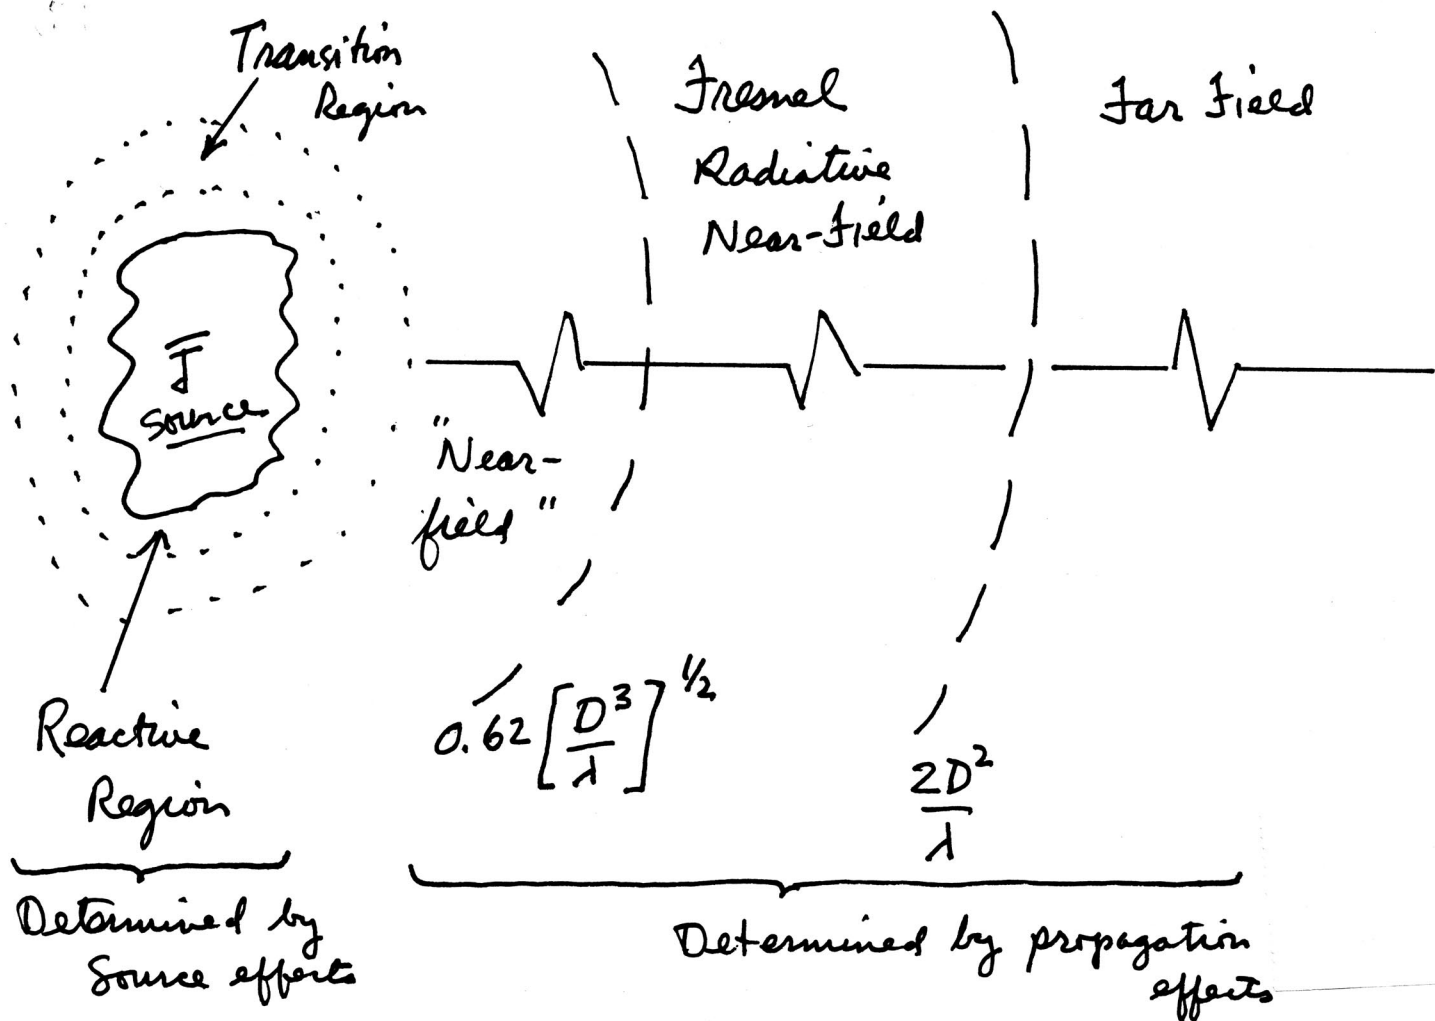 Transition
Region
Fresnel
Radiative
Near-Field
Far Field
J̅
Source
"Near-
field"
Reactive
Region
0.62 [D³/λ]^1/2
2D²/λ
Determined by
Source effects
Determined by propagation
effects